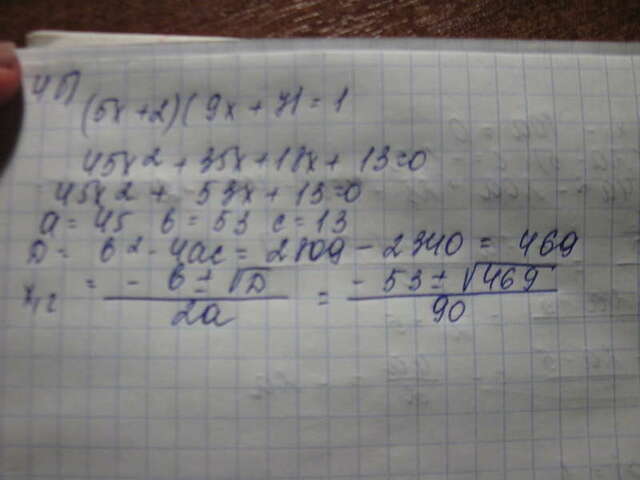 4б)
(5x+2)(9x+7)=1
45x2+35x+18x+13=0
45x2+53x+13=0
a=45 b=53 c=13
D=b2-4ac=2809-2340=469
x1,2 = -b±√D / 2a = -53±√469 / 90